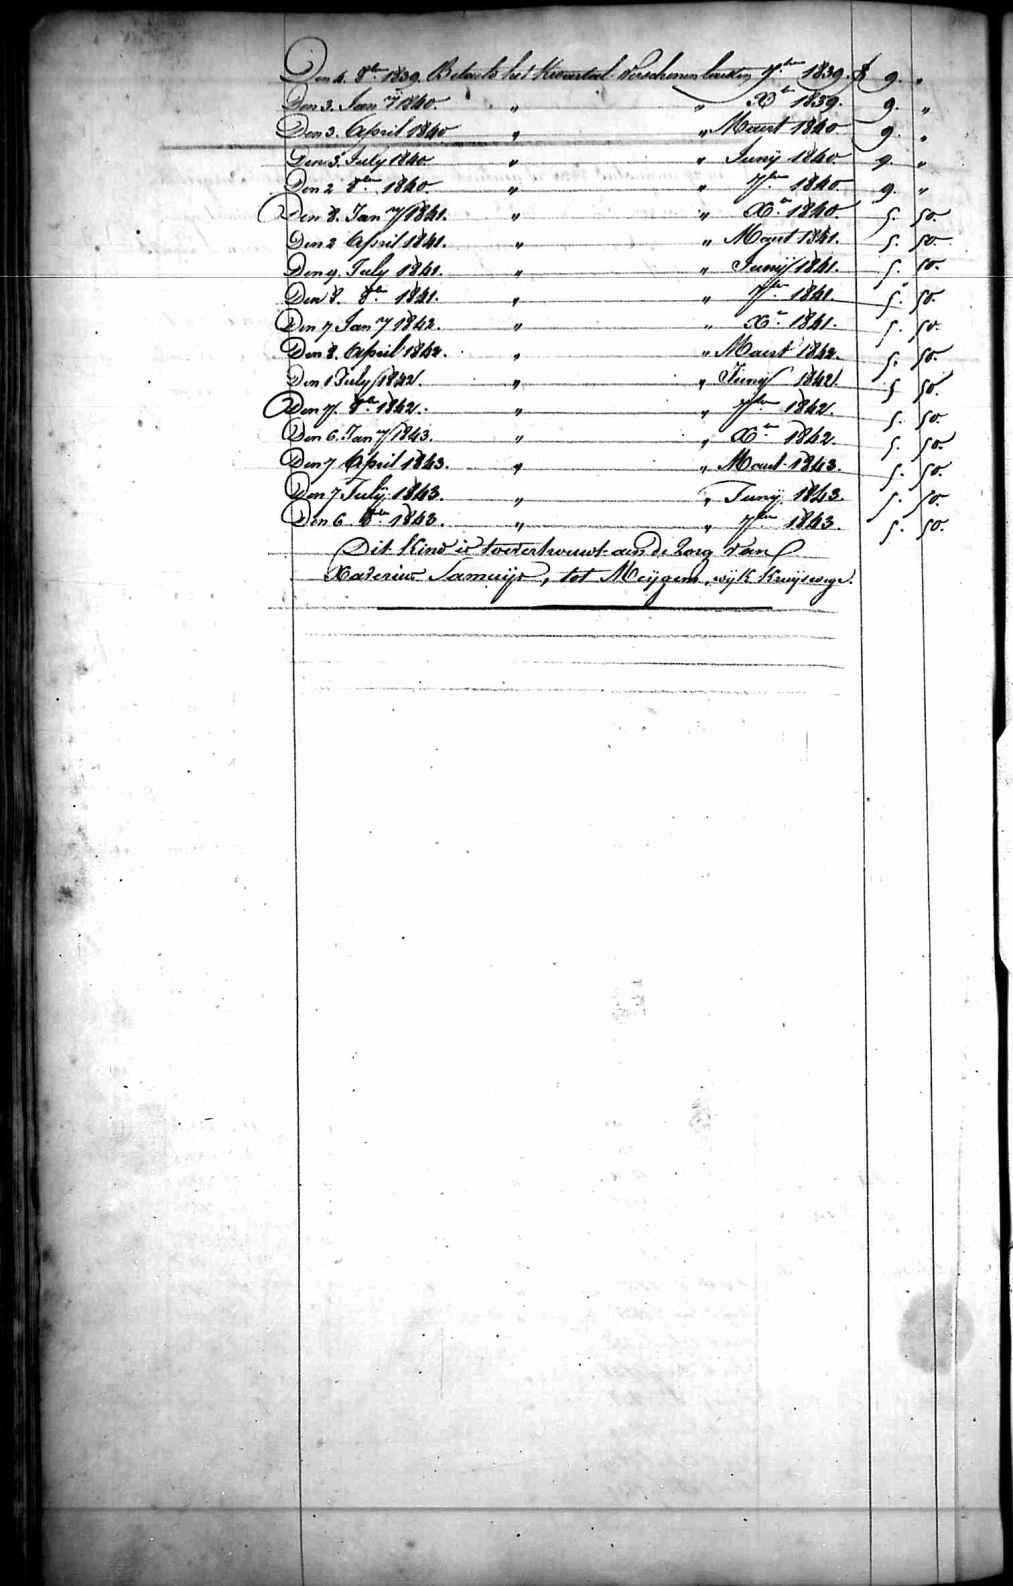 Den 4. 8ber 1839. Betaelt het Kwartael Verschenen laesten 7ber 1839. f 9. "
Den 3. Jany 1840. " " Xber 1839. 9. "
Den 3. April 1840 " " Maert 1840 9. "
Den 3. July 1840 " " Junij 1840 9. "
Den 2 8ber 1840. " " 7ber 1840. 9. "
Den 8. Jany 1841. " " Xber 1840. 5. 50.
Den 2 April 1841. " " Maert 1841. 5. 50.
Den 9. July 1841. " " Junij 1841. 5. 50.
Den 8. 8ber 1841. " " 7ber 1841. 5. 50.
Den 7 Jany 1842. " " Xber 1841. 5. 50.
Den 8. April 1842. " " Maert 1842. 5. 50.
Den 1 July 1842. " " Junij 1842. 5 50.
Den 7. 8ber 1842. " " 7ber 1842. 5. 50.
Den 6. Jany 1843. " " Xber 1842. 5. 50.
Den 7 April 1843. " " Maert 1843. 5. 50.
Den 7 July 1843. " " Junij 1843. 5. 50.
Den 6. 8ber 1843. " " 7ber 1843. 5. 50.
Dit Kind is toevertrouwt aen de Zorg van
Xaverius, tot Meijgem, wijk Kruijswege.